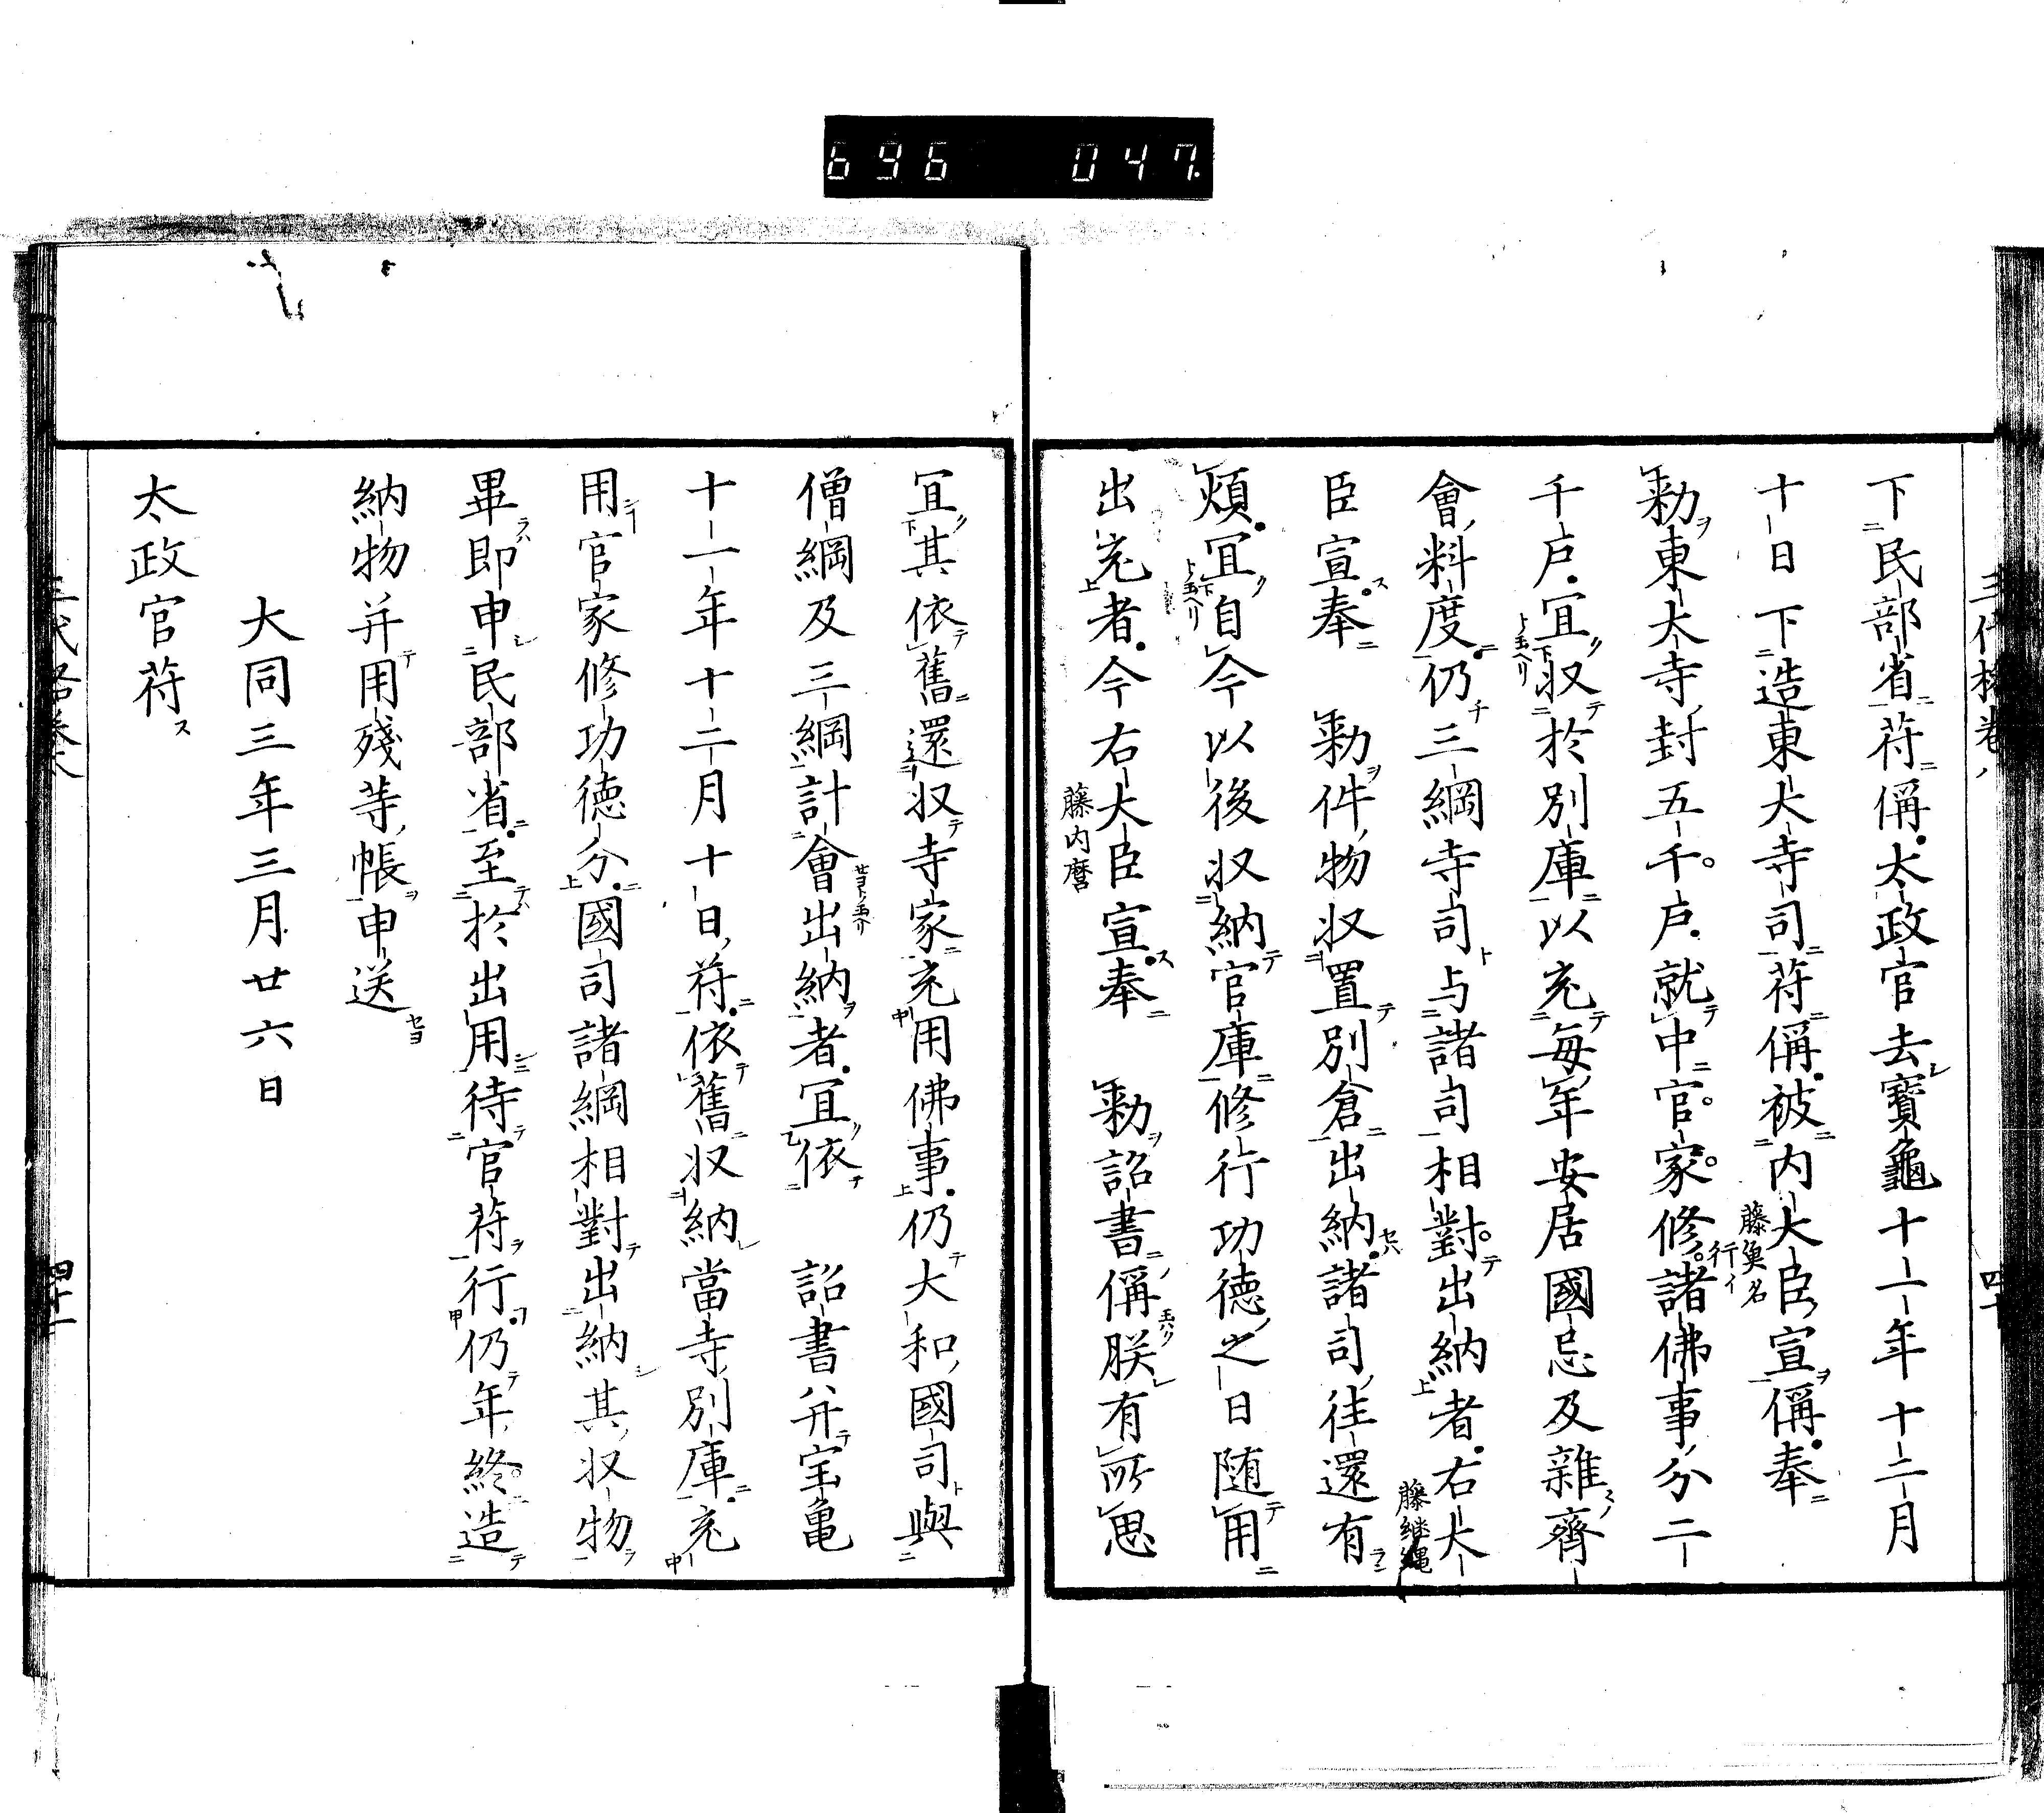 696 047
下民部省符稱太政官去寶龜十一年十二月
十日下造東大寺司符稱被内大臣宣稱奉
藤魚名
行イ
勅東大寺封五千戸就中官家修諸佛事分二
千戸宜収於別庫以充毎年安居國忌及雜齊
會料度仍三綱寺司与諸司相對出納者右大
藤継縄
臣宣奉　勅件物収置別倉出納諸司徃還有
煩宜自今以後収納官庫修行功徳之日随用
出充者今右大臣宣奉　勅詔書稱朕有所思
藤内麿
宜其依舊還収寺家充用佛事仍大和國司與
僧綱及三綱計會出納者宜依　詔書并宝亀
十一年十二月十日符依舊収納當寺別庫充
用官家修功徳分國司諸綱相對出納其収物
畢即申民部省至於出用待官符行仍年終造
納物并用殘等帳申送
大同三年三月廿六日
太政官符
四十一